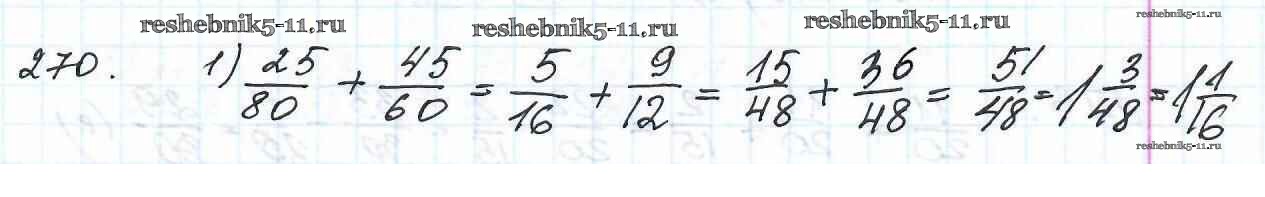 reshebnik5-11.ru reshebnik5-11.ru reshebnik5-11.ru reshebnik5-11.ru
270. 1) 25/80 + 45/60 = 5/16 + 9/12 = 15/48 + 36/48 = 51/48 = 1 3/48 = 1 1/16
reshebnik5-11.ru